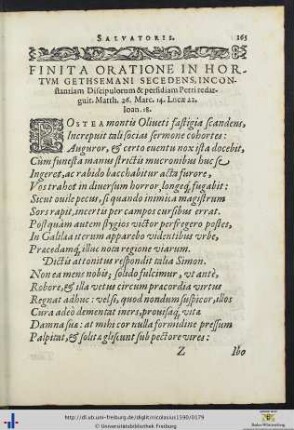 SALVATORIS. 165
FINITA ORATIONE IN HOR-
TVM GETHSEMANI SECEDENS, INCON-
stantiam Discipulorum & perfidiam Petri redar-
guit. Matth. 26. Marc. 14. Lucæ 22.
Ioan. 18.
POSTEA montis Oliueti fastigia scandens,
Increpuit tali socias sermone cohortes:
Auguror, & certo euentu nox ista docebit,
Cum funesta manus strictis mucronibus huc se
Ingeret, ac rabido bacchabitur acta furore,
Vos trahet in diuersum horror, longeq́ fugabit:
Sicut ouile pecus, si quando inimica magistrum
Sors rapit, incertu per campos cursibus errat.
Postquàm autem stygios victor perfregero postes,
In Galilæa iterum apparebo videntibus vrbe,
Præcedamq́, illuc nota regione viarum.
Dictis attonitus respondit talia Simon.
Non ea mens nobis; solido fulcimur, vt antè,
Robore, & illa vetus circum præcordia virtus
Regnat adhuc: vel si, quod nondum suspicor, illos
Cura adeò dementat iners, prouisaq́, vita
Damna suæ: at mihi cor nulla formidine pressum
Palpitat, & solitæ gliscunt sub pectore vires:
Z Ibo
http://dl.ub.uni-freiburg.de/diglit/nicolausius1590/0179
© Universitätsbibliothek Freiburg